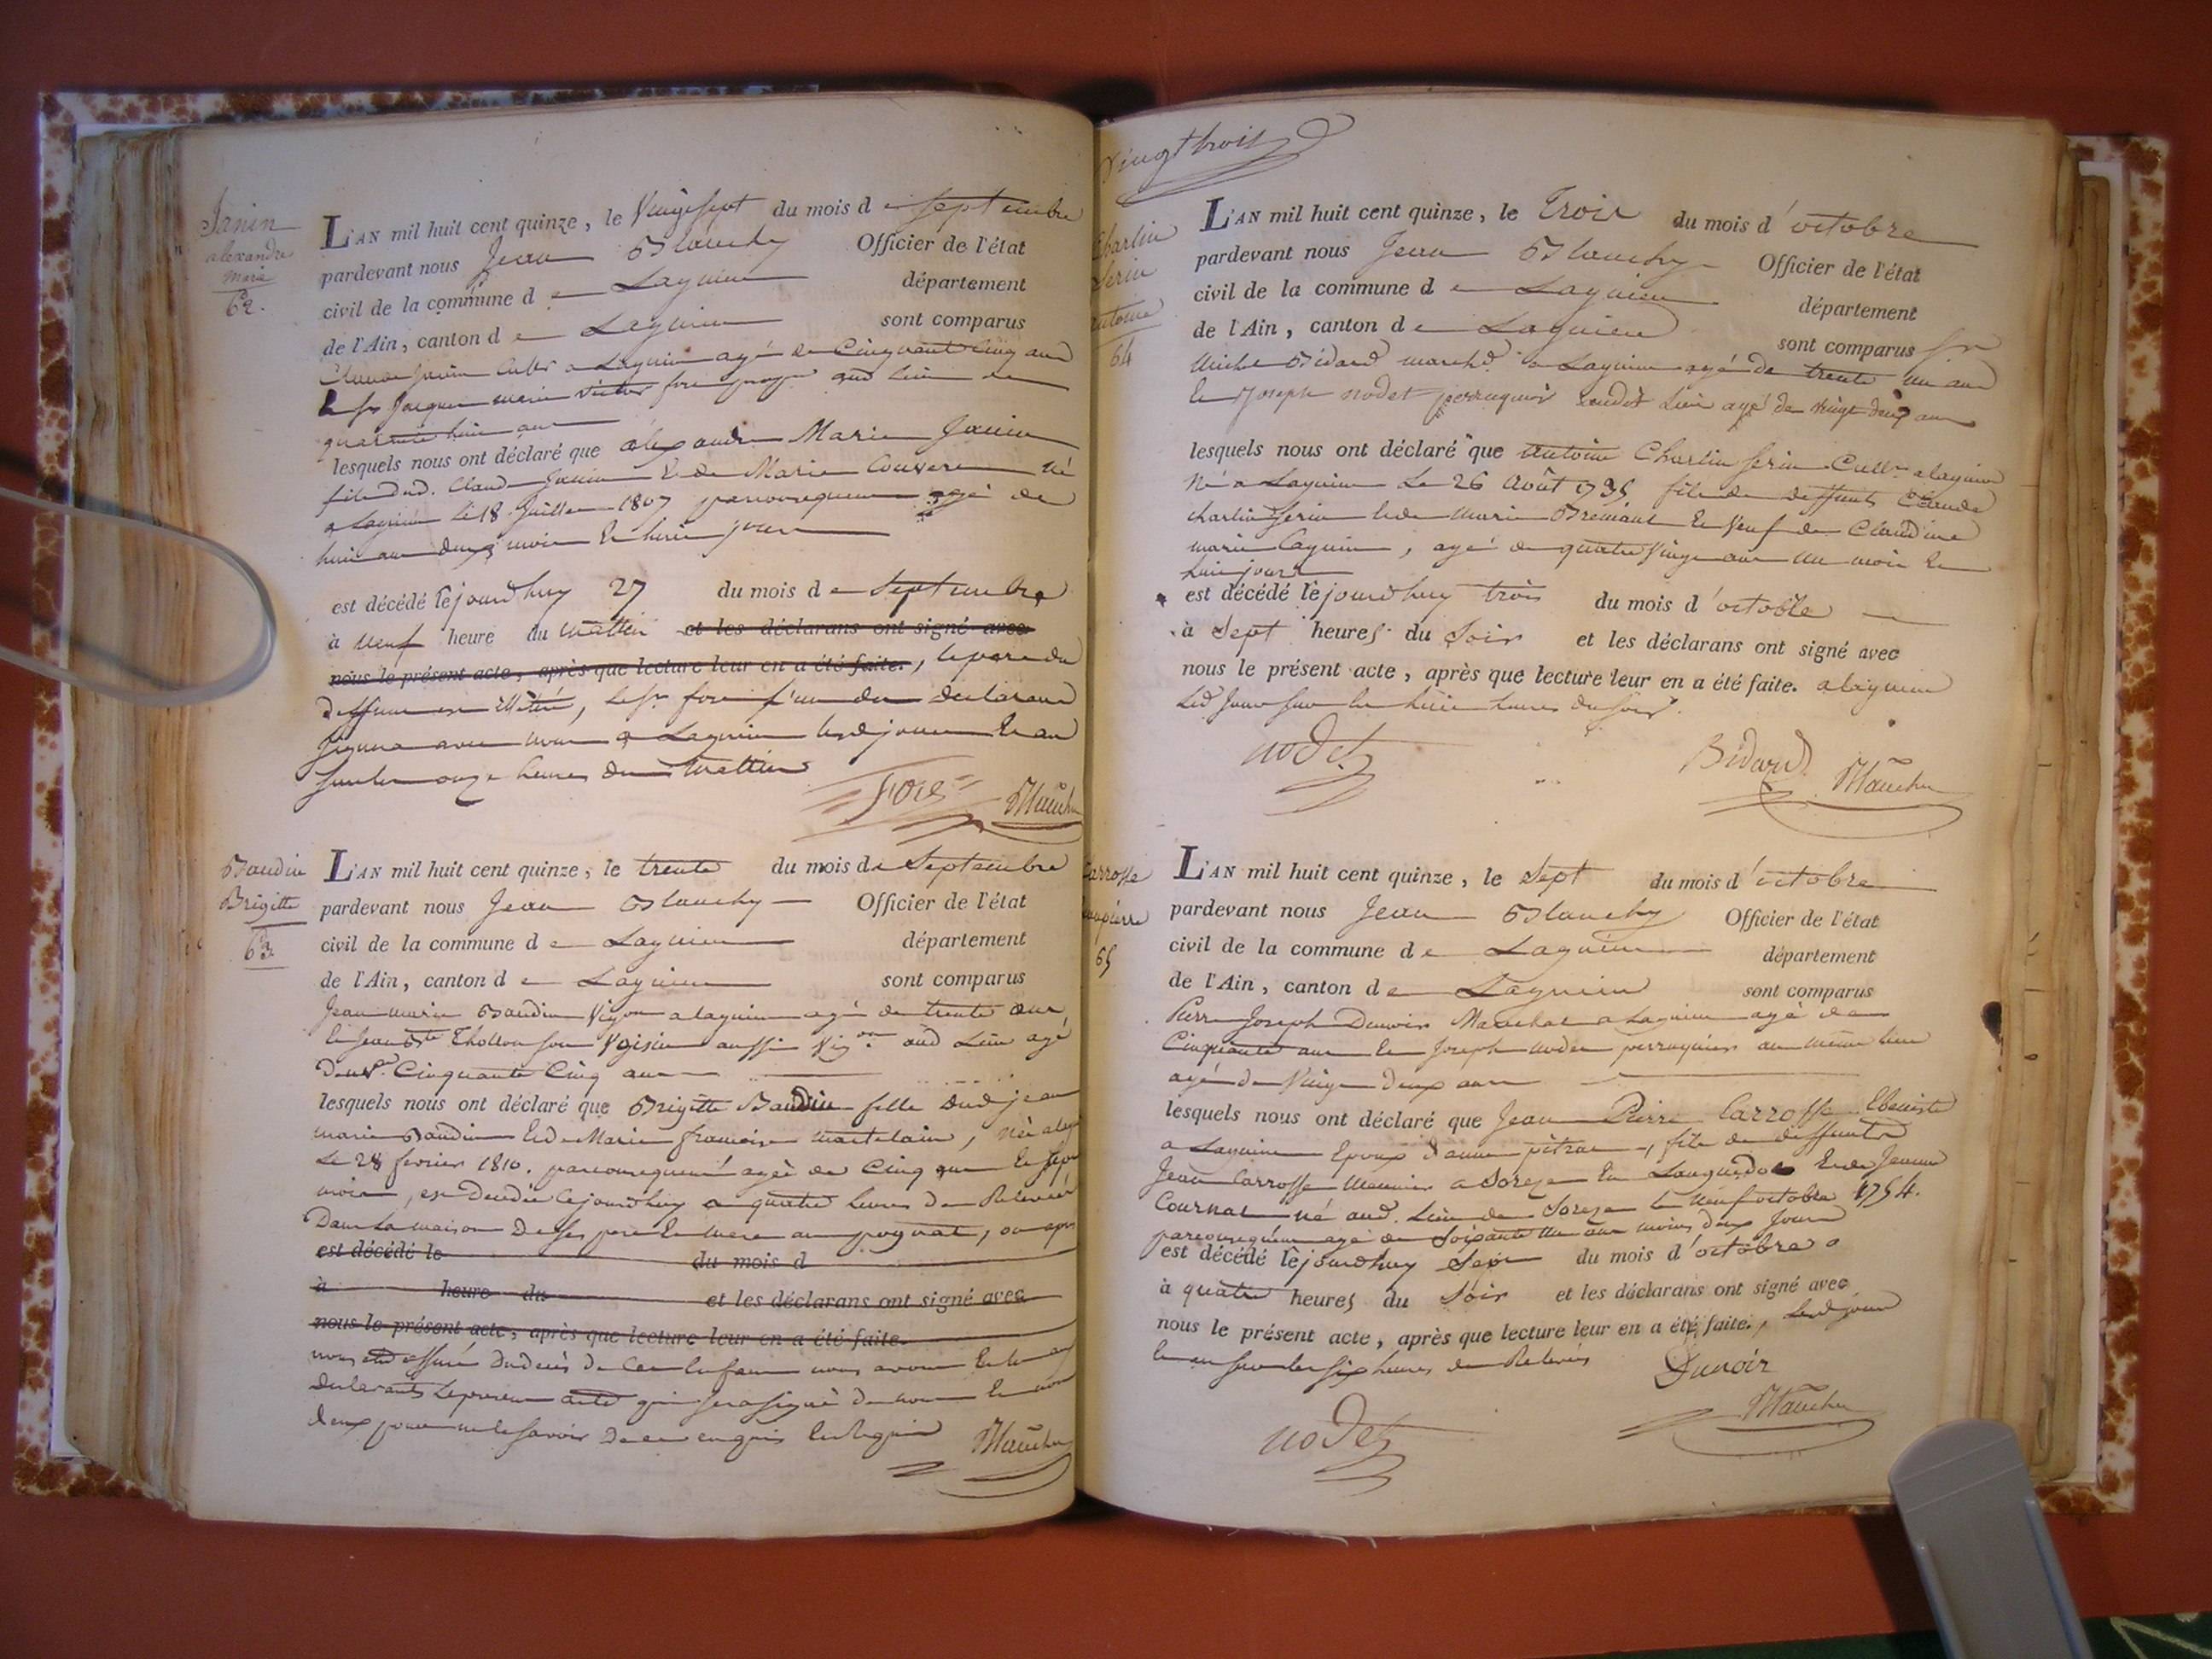 Janin
alexandre
Marie
62.
L'AN mil huit cent quinze, le Vingt sept du mois de septembre
pardevant nous Jean Blanchy Officier de l'état
civil de la commune de Lagnieu département
de l'Ain, canton de Lagnieu sont comparus
Claude Janin a Lagnieu agé de Cinquante Cinq ans
le sr Jacques marie victor fore aud lieu
quarante huit ans
lesquels nous ont déclaré que alexandre Marie Janin
fils dud. Claude Janin & de Marie Couvert né
a Lagnieu le 18 Juillet 1807 parconsequent agé de
huit ans deux mois & huit jours
est décédé cejourdhuy 27 du mois de Septembre
à neuf heure du mattin et les déclarans ont signé avec
nous le présent acte, après que lecture leur en a été faite., le pere du
deffunt est illitéré, le sr fore l'un des declarans
signera avec nous a Lagnieu lesd jour & an
sur les onze heures du mattin
Fore Blanchy
Baudin
Brigitte
63
L'AN mil huit cent quinze, le trente du mois de Septembre
pardevant nous Jean Blanchy Officier de l'état
civil de la commune de Lagnieu département
de l'Ain, canton de Lagnieu sont comparus
Jean marie Baudin Vigon a lagnieu agé de trente ans,
& Jean Bte Thollon son Voisin aussi Vigon aud Lieu agé
de Cinquante Cinq ans
lesquels nous ont déclaré que Brigitte Baudin fille dud jean
marie Baudin & de Marie francoise martelain, née a lag
Le 28 fevrier 1810. parconsequent agée de Cinq ans & sept
mois, est decedée cejourdhuy a quatre heures de Relevée
Dans la maison de ses pere & mere au, ou apres
est décédé le du mois d
à heure du et les déclarans ont signé avec
nous le présent acte, après que lecture leur en a été faite.
nous etre assuré du decès de cet enfant nous avons
declarants le present acte qui sera signé de nous & non
deux pour ne le savoir de ce enquis & requis
Blanchy
Vingt trois
Charlin
Serin
antoine
64
L'AN mil huit cent quinze, le Trois du mois d'octobre
pardevant nous Jean Blanchy Officier de l'état
civil de la commune de Lagnieu département
de l'Ain, canton de Lagnieu sont comparus sr
Michel Bidard marchd a Lagnieu agé de trente un ans
le Joseph nodet perruquier audit Lieu agé de vingt deux ans
lesquels nous ont déclaré que antoine Charlin serin Cultr a lagnieu
Né a Lagnieu Le 26 Août 1735 fils de deffunts Claude
charlin Serin & de marie & Veuf de Claudine
marie, agé de quatre Vingt ans un mois &
huit jours
est décédé cejourdhuy trois du mois d'octobre
à sept heures du Soir et les déclarans ont signé avec
nous le présent acte, après que lecture leur en a été faite. a lagnieu
led jour sur les huit heures du soir.
nodet Bidard Blanchy
Carrosse
jeanpierre
65
L'AN mil huit cent quinze, le Sept du mois d'octobre
pardevant nous Jean Blanchy Officier de l'état
civil de la commune de Lagnieu département
de l'Ain, canton de Lagnieu sont comparus
Pierre Joseph Dunoir Marechal a Lagnieu agé de
Cinquante ans & Joseph nodet perruquier au même lieu
agé de Vingt deux ans
lesquels nous ont déclaré que Jean Pierre Carrosse Ebeniste
a Lagnieu Epoux d'anne pitrat, fils de deffunts
Jean Carrosse Meunier a Soreze en Languedoc & de Jeanne
Cournac né aud. Lieu de Soreze le neuf octobre 1754.
parconsequent agé de soixante un ans moins deux Jours
est décédé cejourdhuy Sept du mois d'octobre
à quatre heures du Soir et les déclarans ont signé avec
nous le présent acte, après que lecture leur en a été faite., lesd jour
& an sur les six heures de Relevée
Dunoir
nodet Blanchy